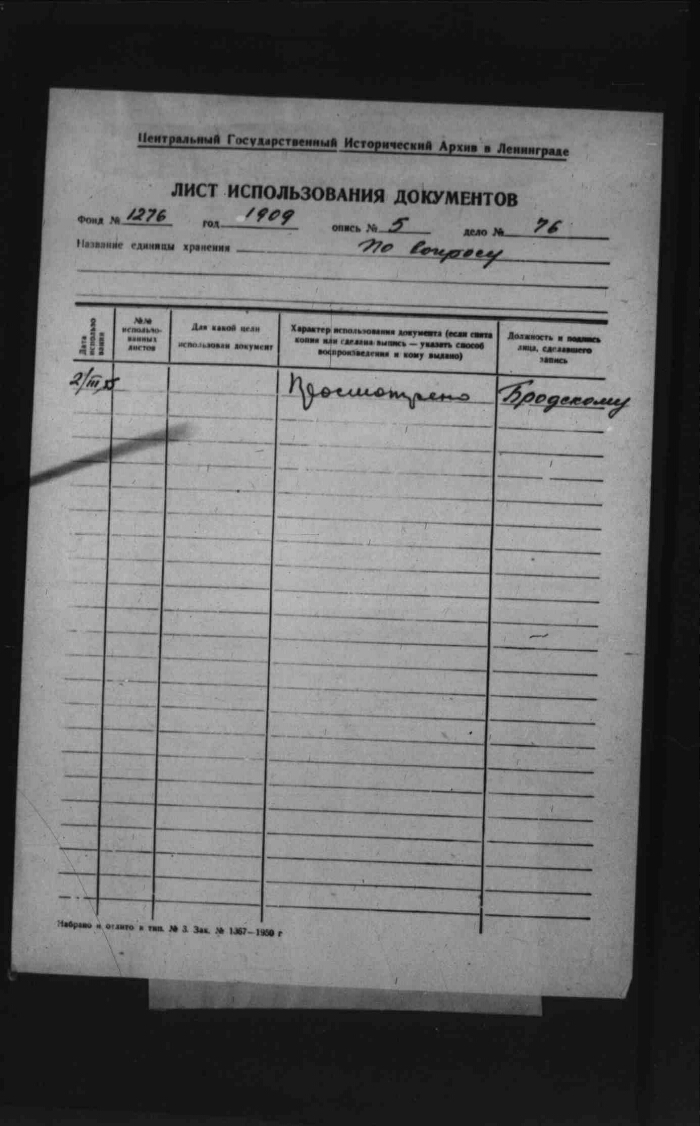 Центральный Государственный Исторический Архив в Ленинграде
ЛИСТ ИСПОЛЬЗОВАНИЯ ДОКУМЕНТОВ
Фонд № 1276 год 1909 опись № 5 дело № 76
Название единицы хранения По вопросу
Дата использования
№№ использованных листов
Для какой цели использован документ
Характер использования документа (если снята копия или сделана выпись — указать способ воспроизведения и кому выдано)
Должность и подпись лица, сделавшего запись
2/III Просмотрено Бродскому
Набрано и отлито в тип. № 3. Зак. № 1367—1950 г